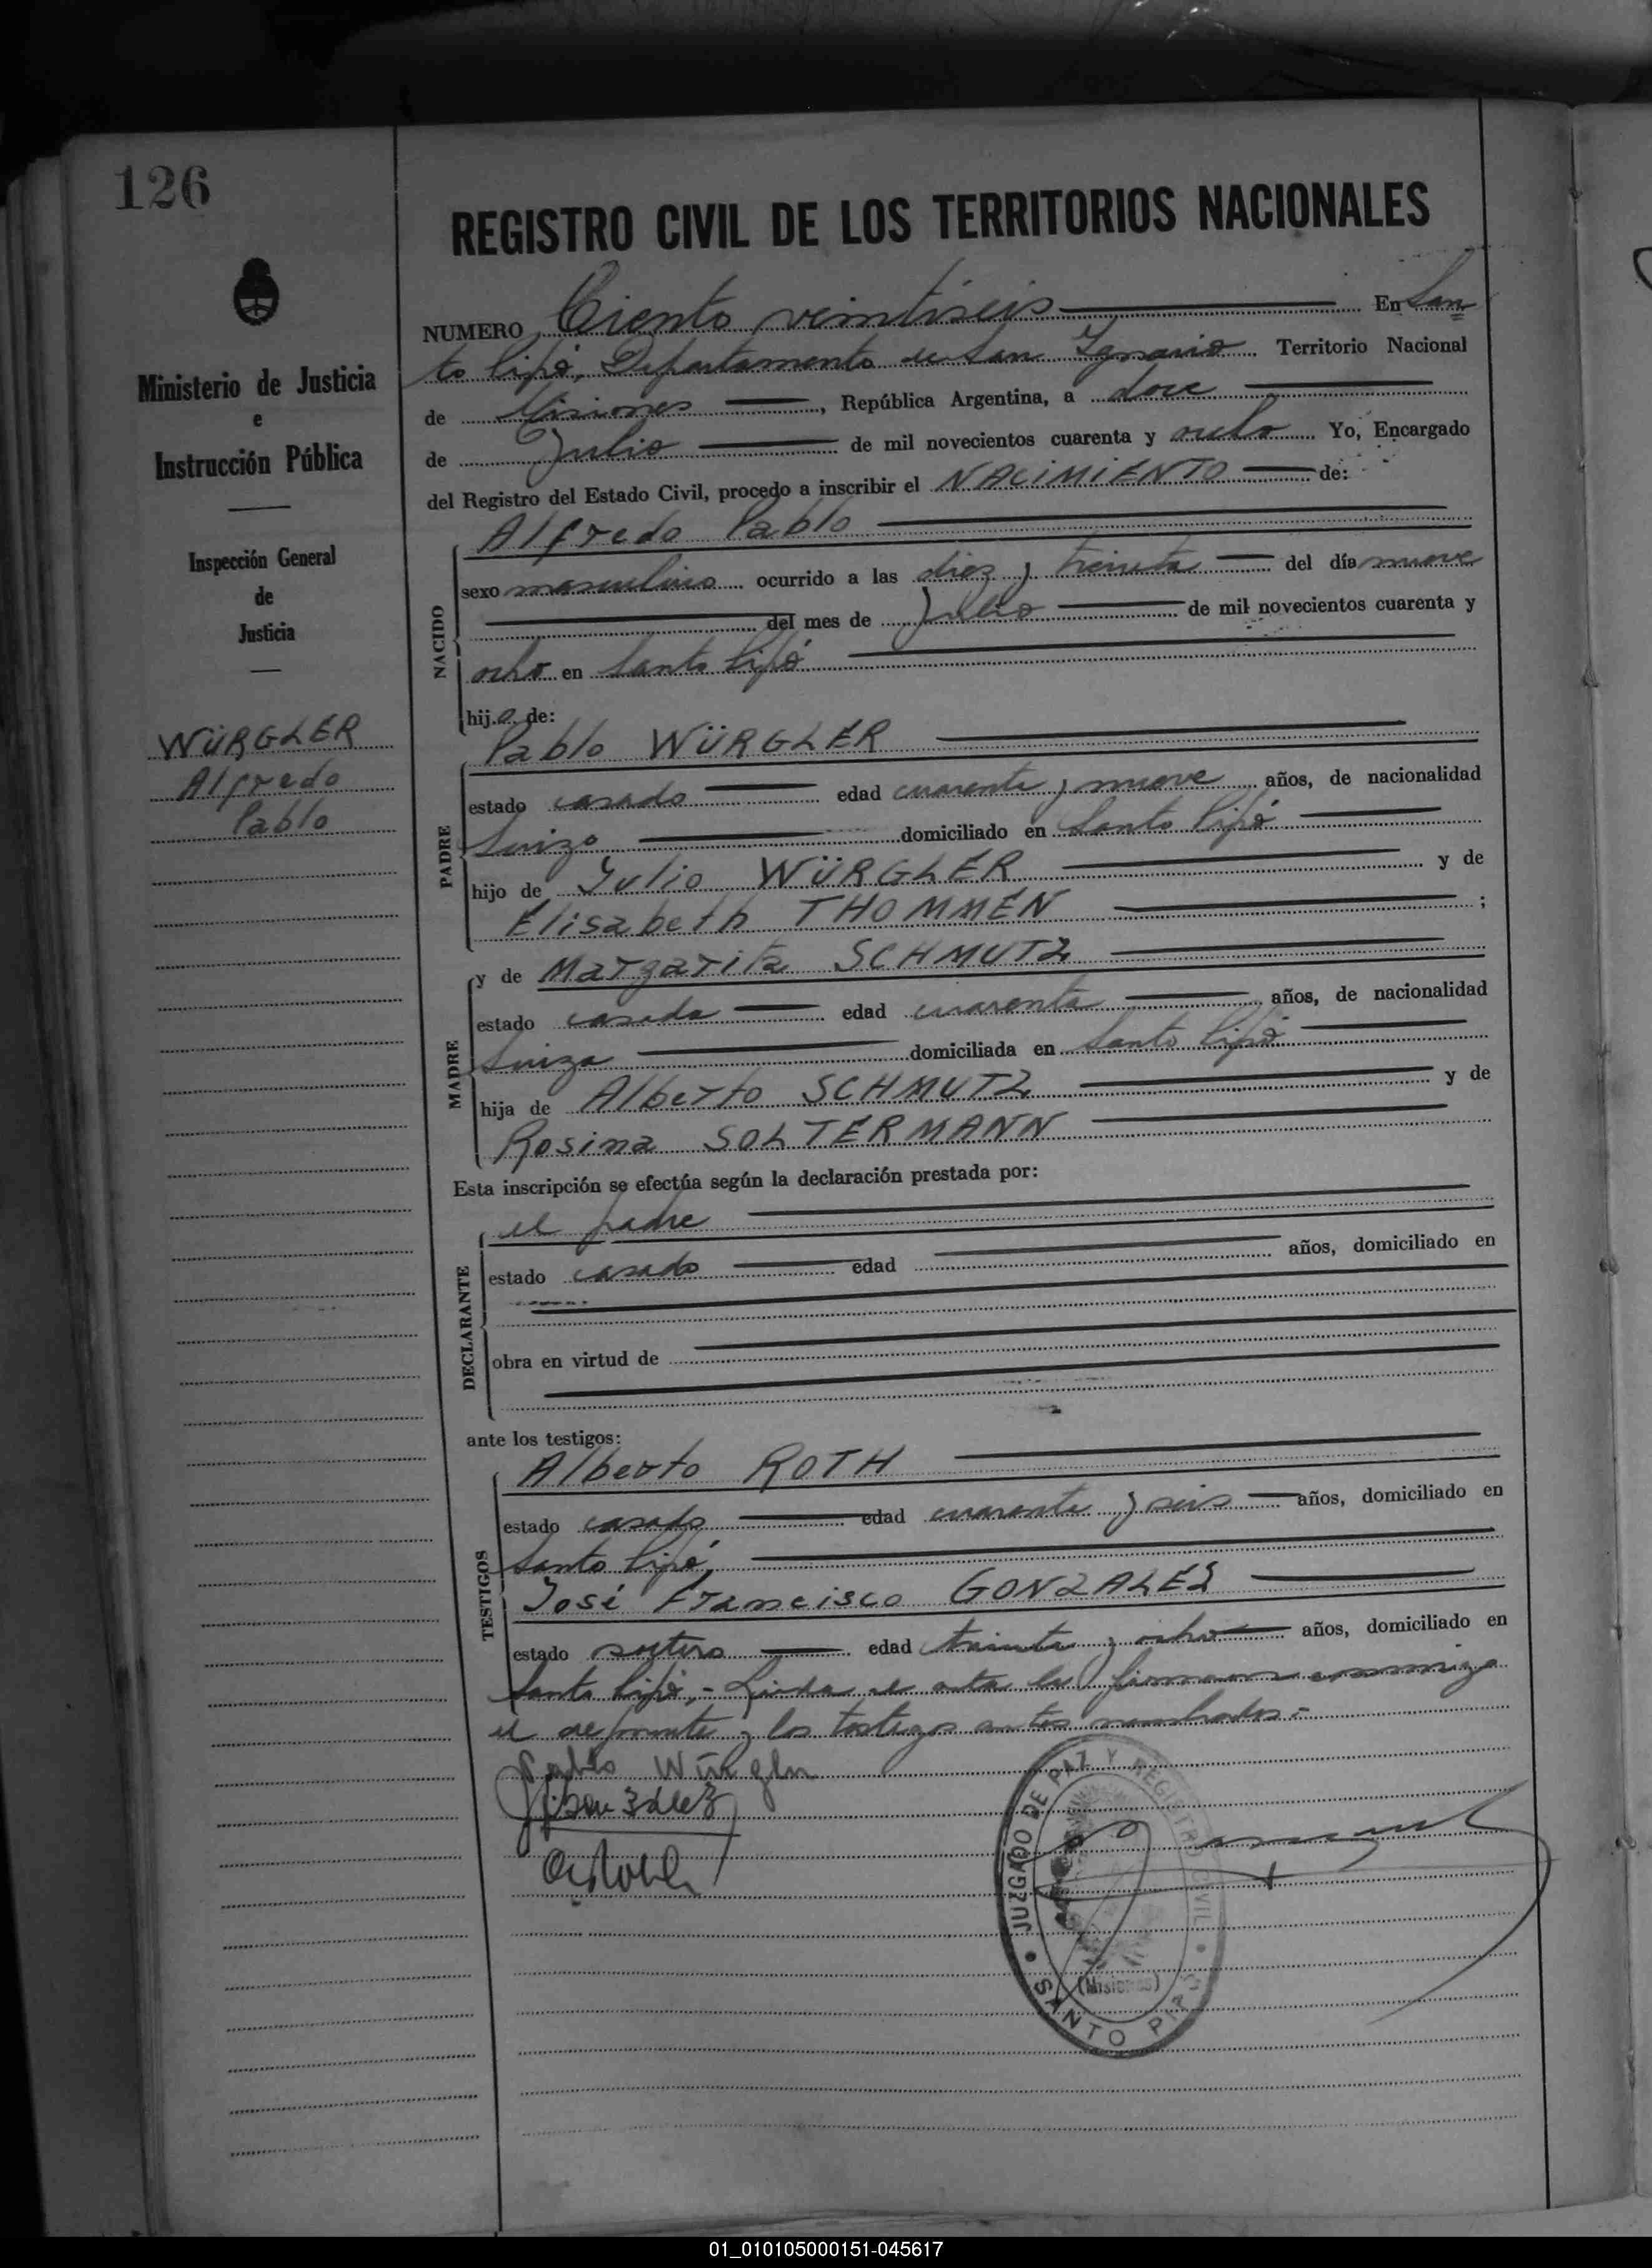 126
REGISTRO CIVIL DE LOS TERRITORIOS NACIONALES
Ministerio de Justicia
e
Instrucción Pública
Inspección General
de
Justicia
WÜRGLER
Alfredo
Pablo
NUMERO Ciento veintiseis En San
to Pipó, Departamento de San Ignacio Territorio Nacional
de Misiones, República Argentina, a doce
de Julio de mil novecientos cuarenta y ocho Yo, Encargado
del Registro del Estado Civil, procedo a inscribir el NACIMIENTO de:
NACIDO
Alfredo Pablo
sexo masculino ocurrido a las diez y treinta del día nueve
del mes de Julio de mil novecientos cuarenta y
ocho en Santo Pipó
hijo de:
PADRE
Pablo WÜRGLER
estado casado edad cuarenta y nueve años, de nacionalidad
Suizo domiciliado en Santo Pipó
hijo de Julio WÜRGLER y de
Elisabeth THOMMEN ;
MADRE
y de Margarita SCHMUTZ
estado casada edad cuarenta años, de nacionalidad
Suiza domiciliada en Santo Pipó
hija de Alberto SCHMUTZ y de
Rosina SOLTERMANN
Esta inscripción se efectúa según la declaración prestada por:
DECLARANTE
el padre
estado casado edad años, domiciliado en
obra en virtud de
ante los testigos:
TESTIGOS
Alberto ROTH
estado casado edad cuarenta y seis años, domiciliado en
Santo Pipó,
José Francisco GONZALEZ
estado soltero edad treinta y ocho años, domiciliado en
Santo Pipó.- Leida el acta la firman conmigo
el declarante y los testigos antes nombrados.-
Pablo Würgler
JUZGADO DE PAZ Y REGISTRO CIVIL
(Misiones)
SANTO PIPO
01_010105000151-045617